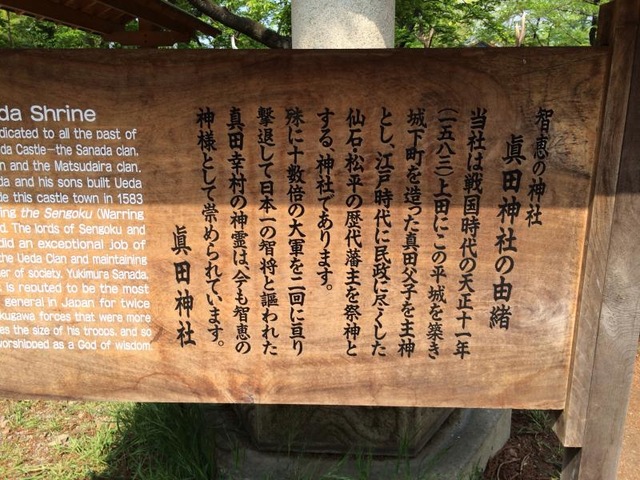 智恵の神社
眞田神社の由緒
当社は戦国時代の天正十一年
（一五八三）上田にこの平城を築き
城下町を造った真田父子を主神
とし、江戸時代に民政に尽くした
仙石・松平の歴代藩主を祭神と
する、神社であります。
殊に十数倍の大軍を二回に亘り
撃退して日本一の智将と謳われた
真田幸村の神霊は、今も智恵の
神様として崇められています。
眞田神社
da Shrine
dicated to all the past of
da Castle—the Sanada clan,
n and the Matsudaira clan.
da and his sons built Ueda
de this castle town in 1583
ring the Sengoku (Warring
d. The lords of Sengoku and
did an exceptional job of
the Ueda Clan and maintaining
er of society. Yukimura Sanada,
is reputed to be the most
general in Japan for twice
kugawa forces that were more
es the size of his troops, and so
worshipped as a God of wisdom.